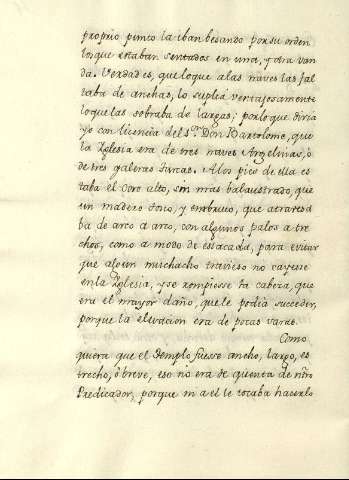 proprio punto la iban besando por su orden
los que estaban sentados en una, y otra van
da. Verdad es, que lo que a las naves las fal
taba de anchas, lo suplia ventajosamente
lo que las sobraba de largas; por lo que diria
yo con licencia del S.r Don Bartolome, que
la Iglesia era de tres naves Argelinas, ò
de tres galeras turcas. A los pies de ella es
taba el coro alto, sin más balaustrado, que
un madero tosco, y embrueco, que atravesa
ba de arco a arco, con algunos palos a tre
chos, como a modo de estacada, para evitar
que algun muchacho travieso no cayesse
en la Iglesia, y se rompiesse la cabeza, que
era el mayor daño, que le podia succeder,
porque la elevacion era de pocas varas.
Como
quiera que el Templo fuesse ancho, largo, es
trecho, ò breve, eso no era de quenta de nr̃o
Predicador, porque ni a el le tocaba hacerlo